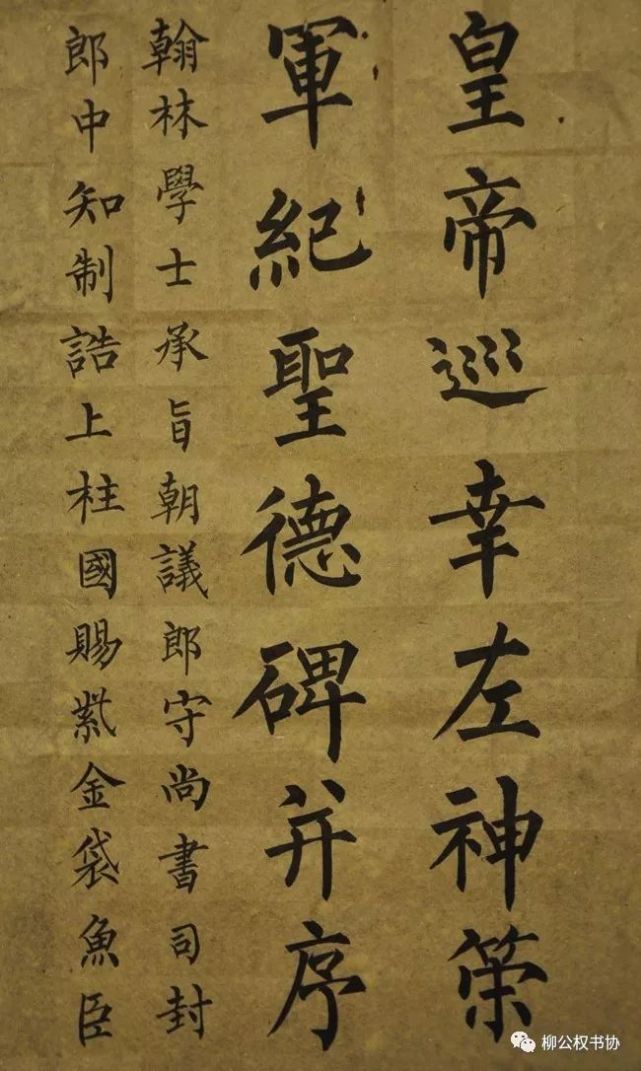 皇帝巡幸左神策
軍紀聖德碑并序
翰林學士承旨朝議郎守尚書司封
郎中知制誥上柱國賜紫金袋魚臣
柳公权书协